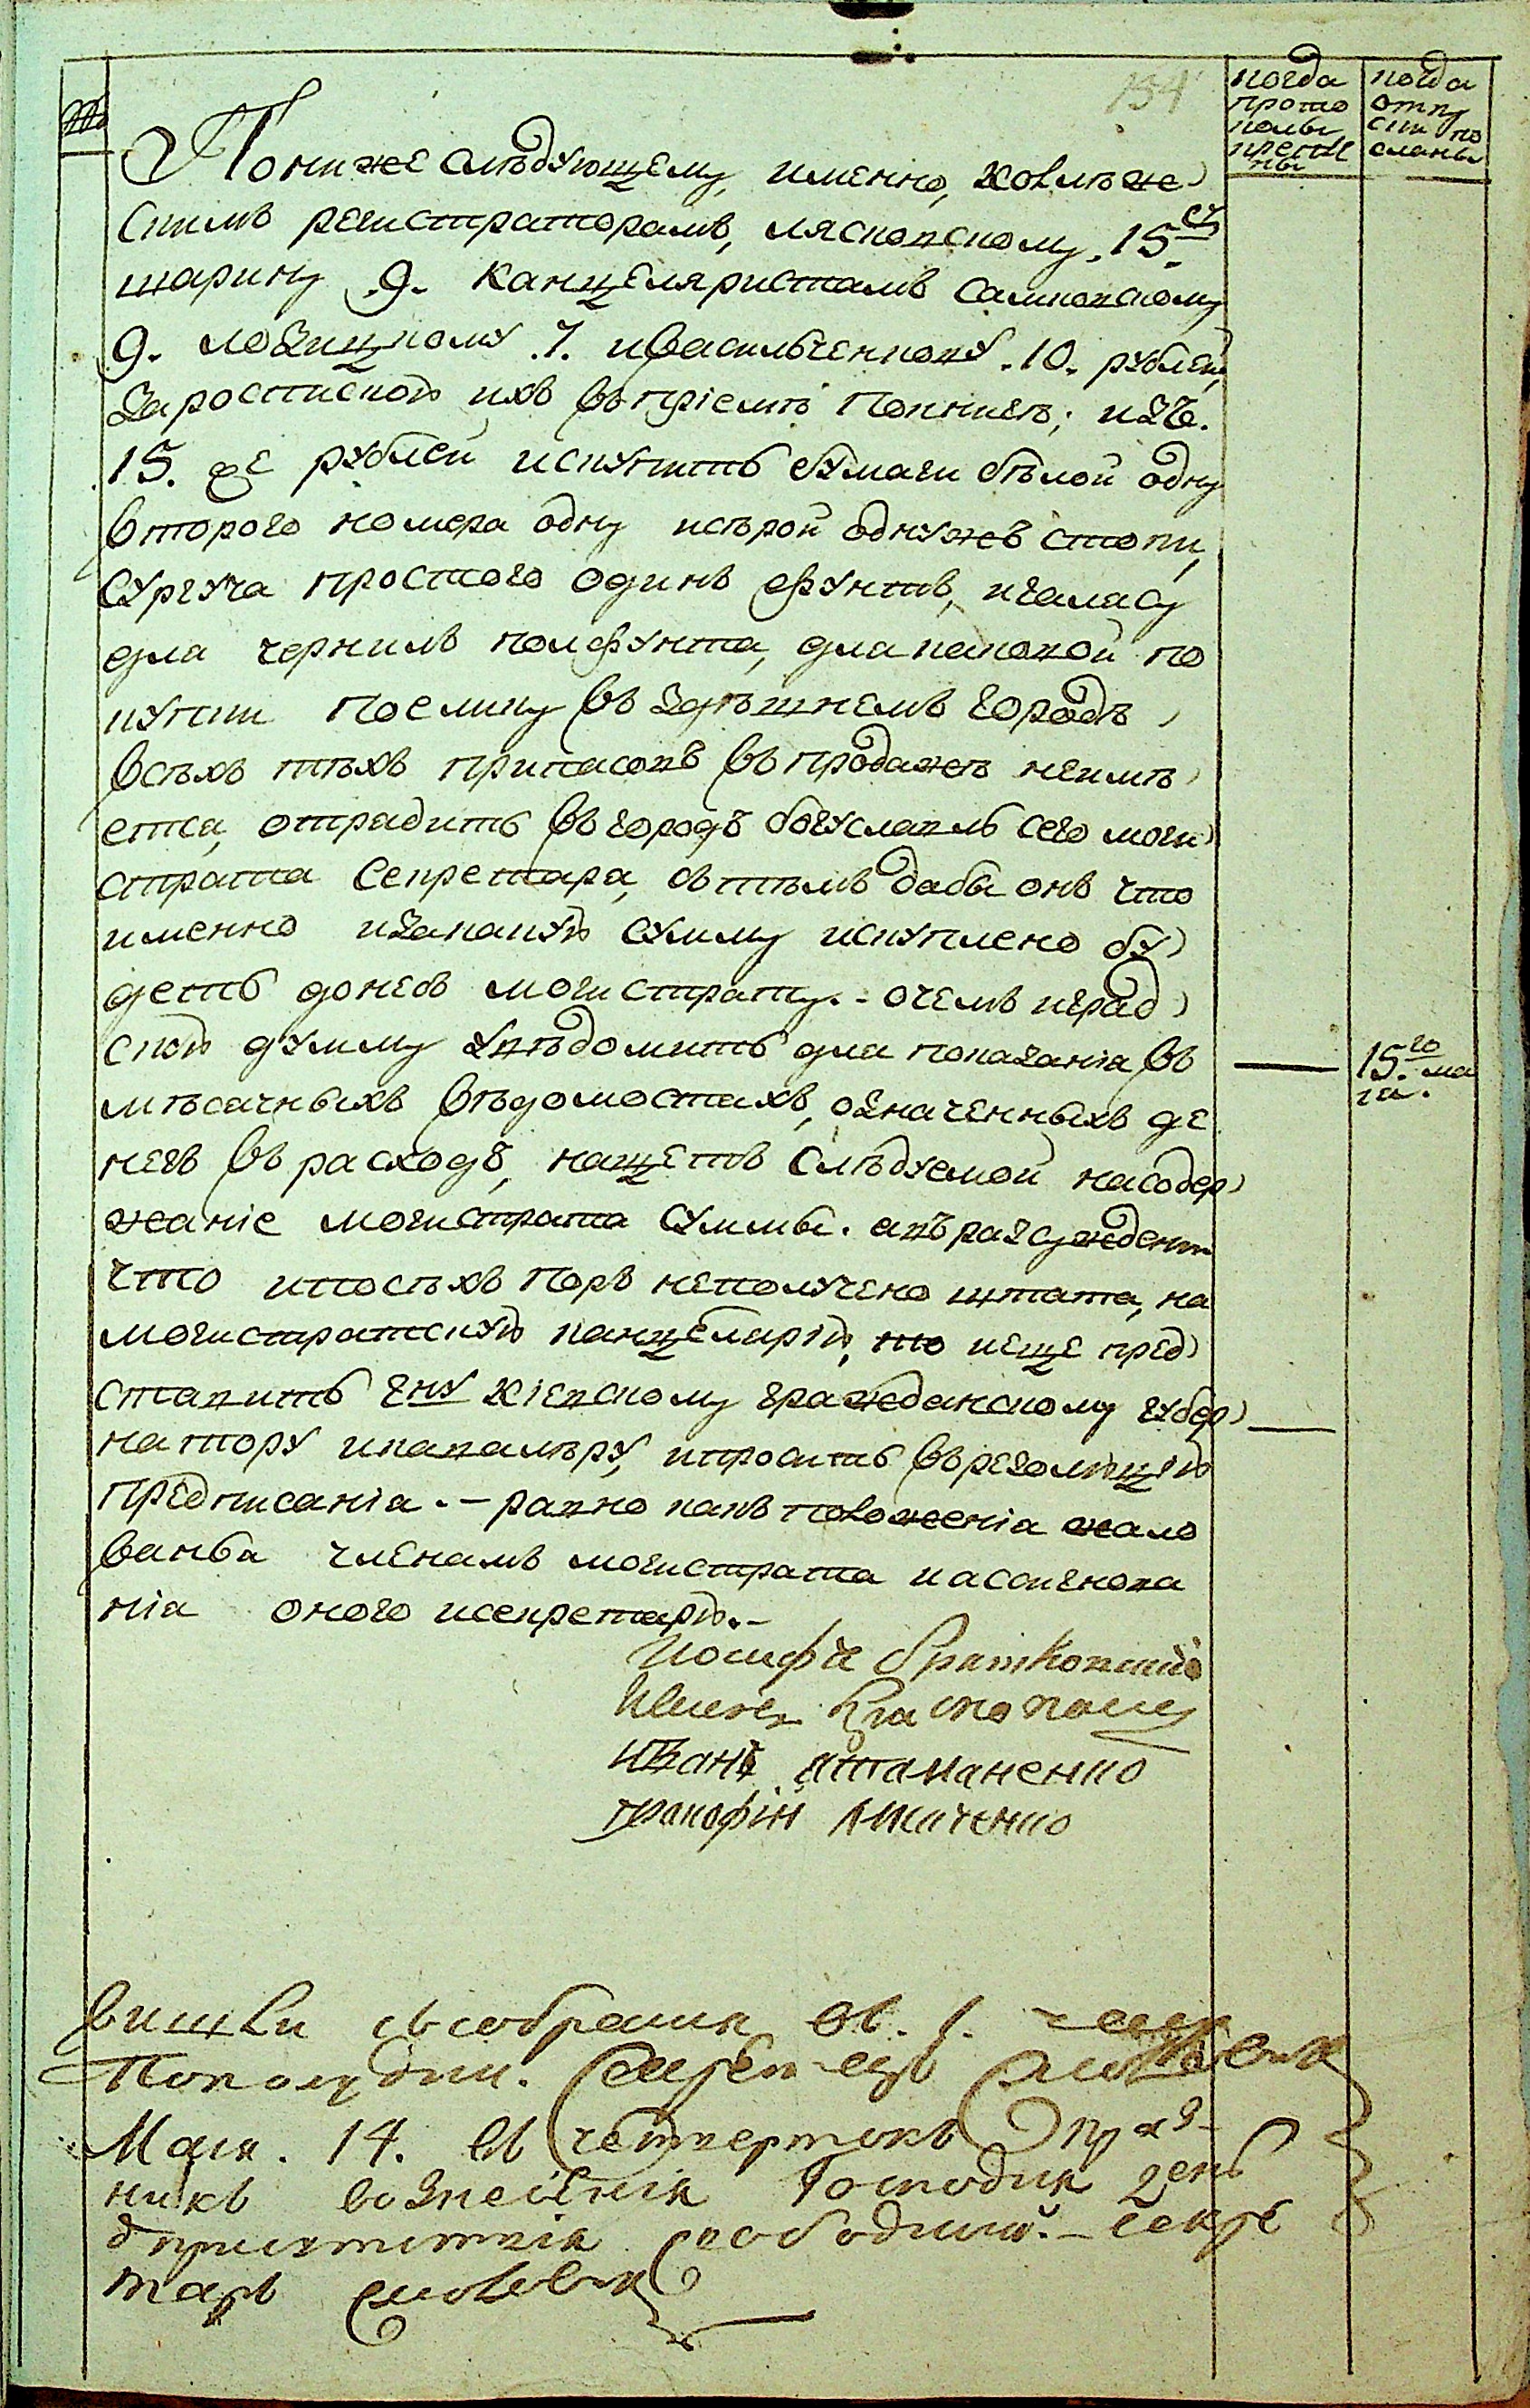 №
134
когда прото колы крепле ны
когда отпу ски по сланы
По ниже слѣдующему, именно, коллеже
скимъ регистраторамъ, лясковскому .15.
шарину .9. канцеляристамъ самковскому
9. лозицкому .7. и васильченкову .10. рублей,
за роспискою ихъ въ пріемѣ по книгѣ; изъ.
15. де рублей искупить бумаги бѣлой одну
второго номера одну и сѣрой одну жъ стопи,
сургуча простого одинъ фунтъ, и галасу
для чернилъ полфунта, для каковой по
купки поелику въ здѣшнемъ городѣ
всѣхъ тѣхъ припасовъ въ продажѣ неимѣ
ется, отрядить въ городъ богуславль сего маги
страта секретаря, съ тѣмъ дабы онъ что
именно и за какую сумму искуплено бу
детъ донесъ магистрату. - о чемъ и град
скую думму увѣдомить для показанія въ
мѣсячныхъ вѣдомостяхъ, означенныхъ де
негъ въ расходъ, нащетъ слѣдуемой на содер
жаніе магистрата суммы. а въ разсуждении
что и то сѣхъ поръ неполучено штата, на
магистратскую канцелярію, то и еще пред
ставить гну кіевскому гражданскому губер
натору и кавалѣру, и просить въ резолюцію
предписанія. - равно какъ положенія жало
ванья членамъ магистрата и ассигнова
нія оного и секретарю. -
15.го мая.
Иосифъ Братковский
Иванъ Атаманенко
Трокофій Ткаченко
вишли съ собрания въ . 1. часу
Пополудни. Секретаръ
Мая . 14. въ четвертокъ Праз-
никъ вознесенія Господня день
отъ присутствія свободний. - Секре
таръ